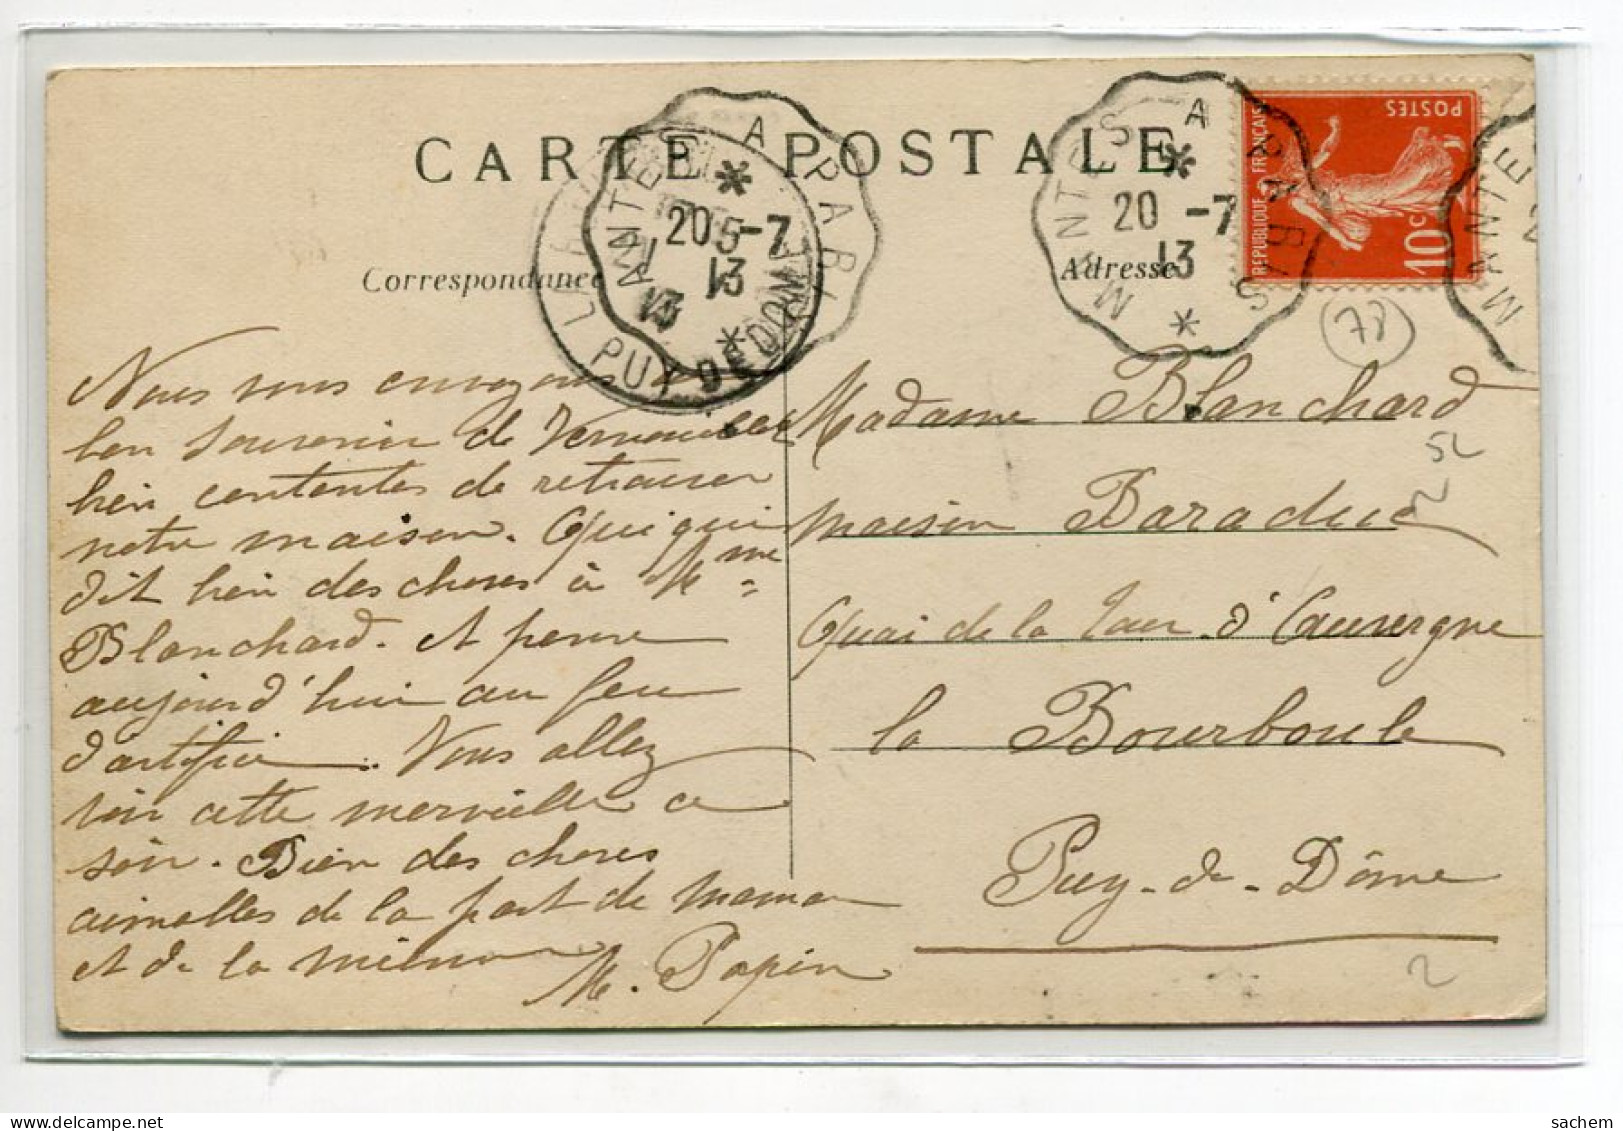 CARTE POSTALE
Correspondance
Adresse
MANTES A PARIS
20 -7
13
MANTES A PARIS
20 -7
13
LA BOURBOULE
PUY DE DOME
13
REPUBLIQUE FRANÇAISE
POSTES
10c
MANTES
78
Nous vous envoyons un
bon souvenir de Verneuil
bien contentes de retrouver
notre maison. Quiqui
dit bien des choses à Mme
Blanchard. et pense
aujourd'hui au feu
d'artifice. Vous allez
voir cette merveille ce
soir. Bien des choses
aimables de la part de maman
et de la mienne
M. Papin
Madame Blanchard
maison Baraduc
Quai de la Tour d'Auvergne
la Bourboule
Puy-de-Dôme
52
2
sachem